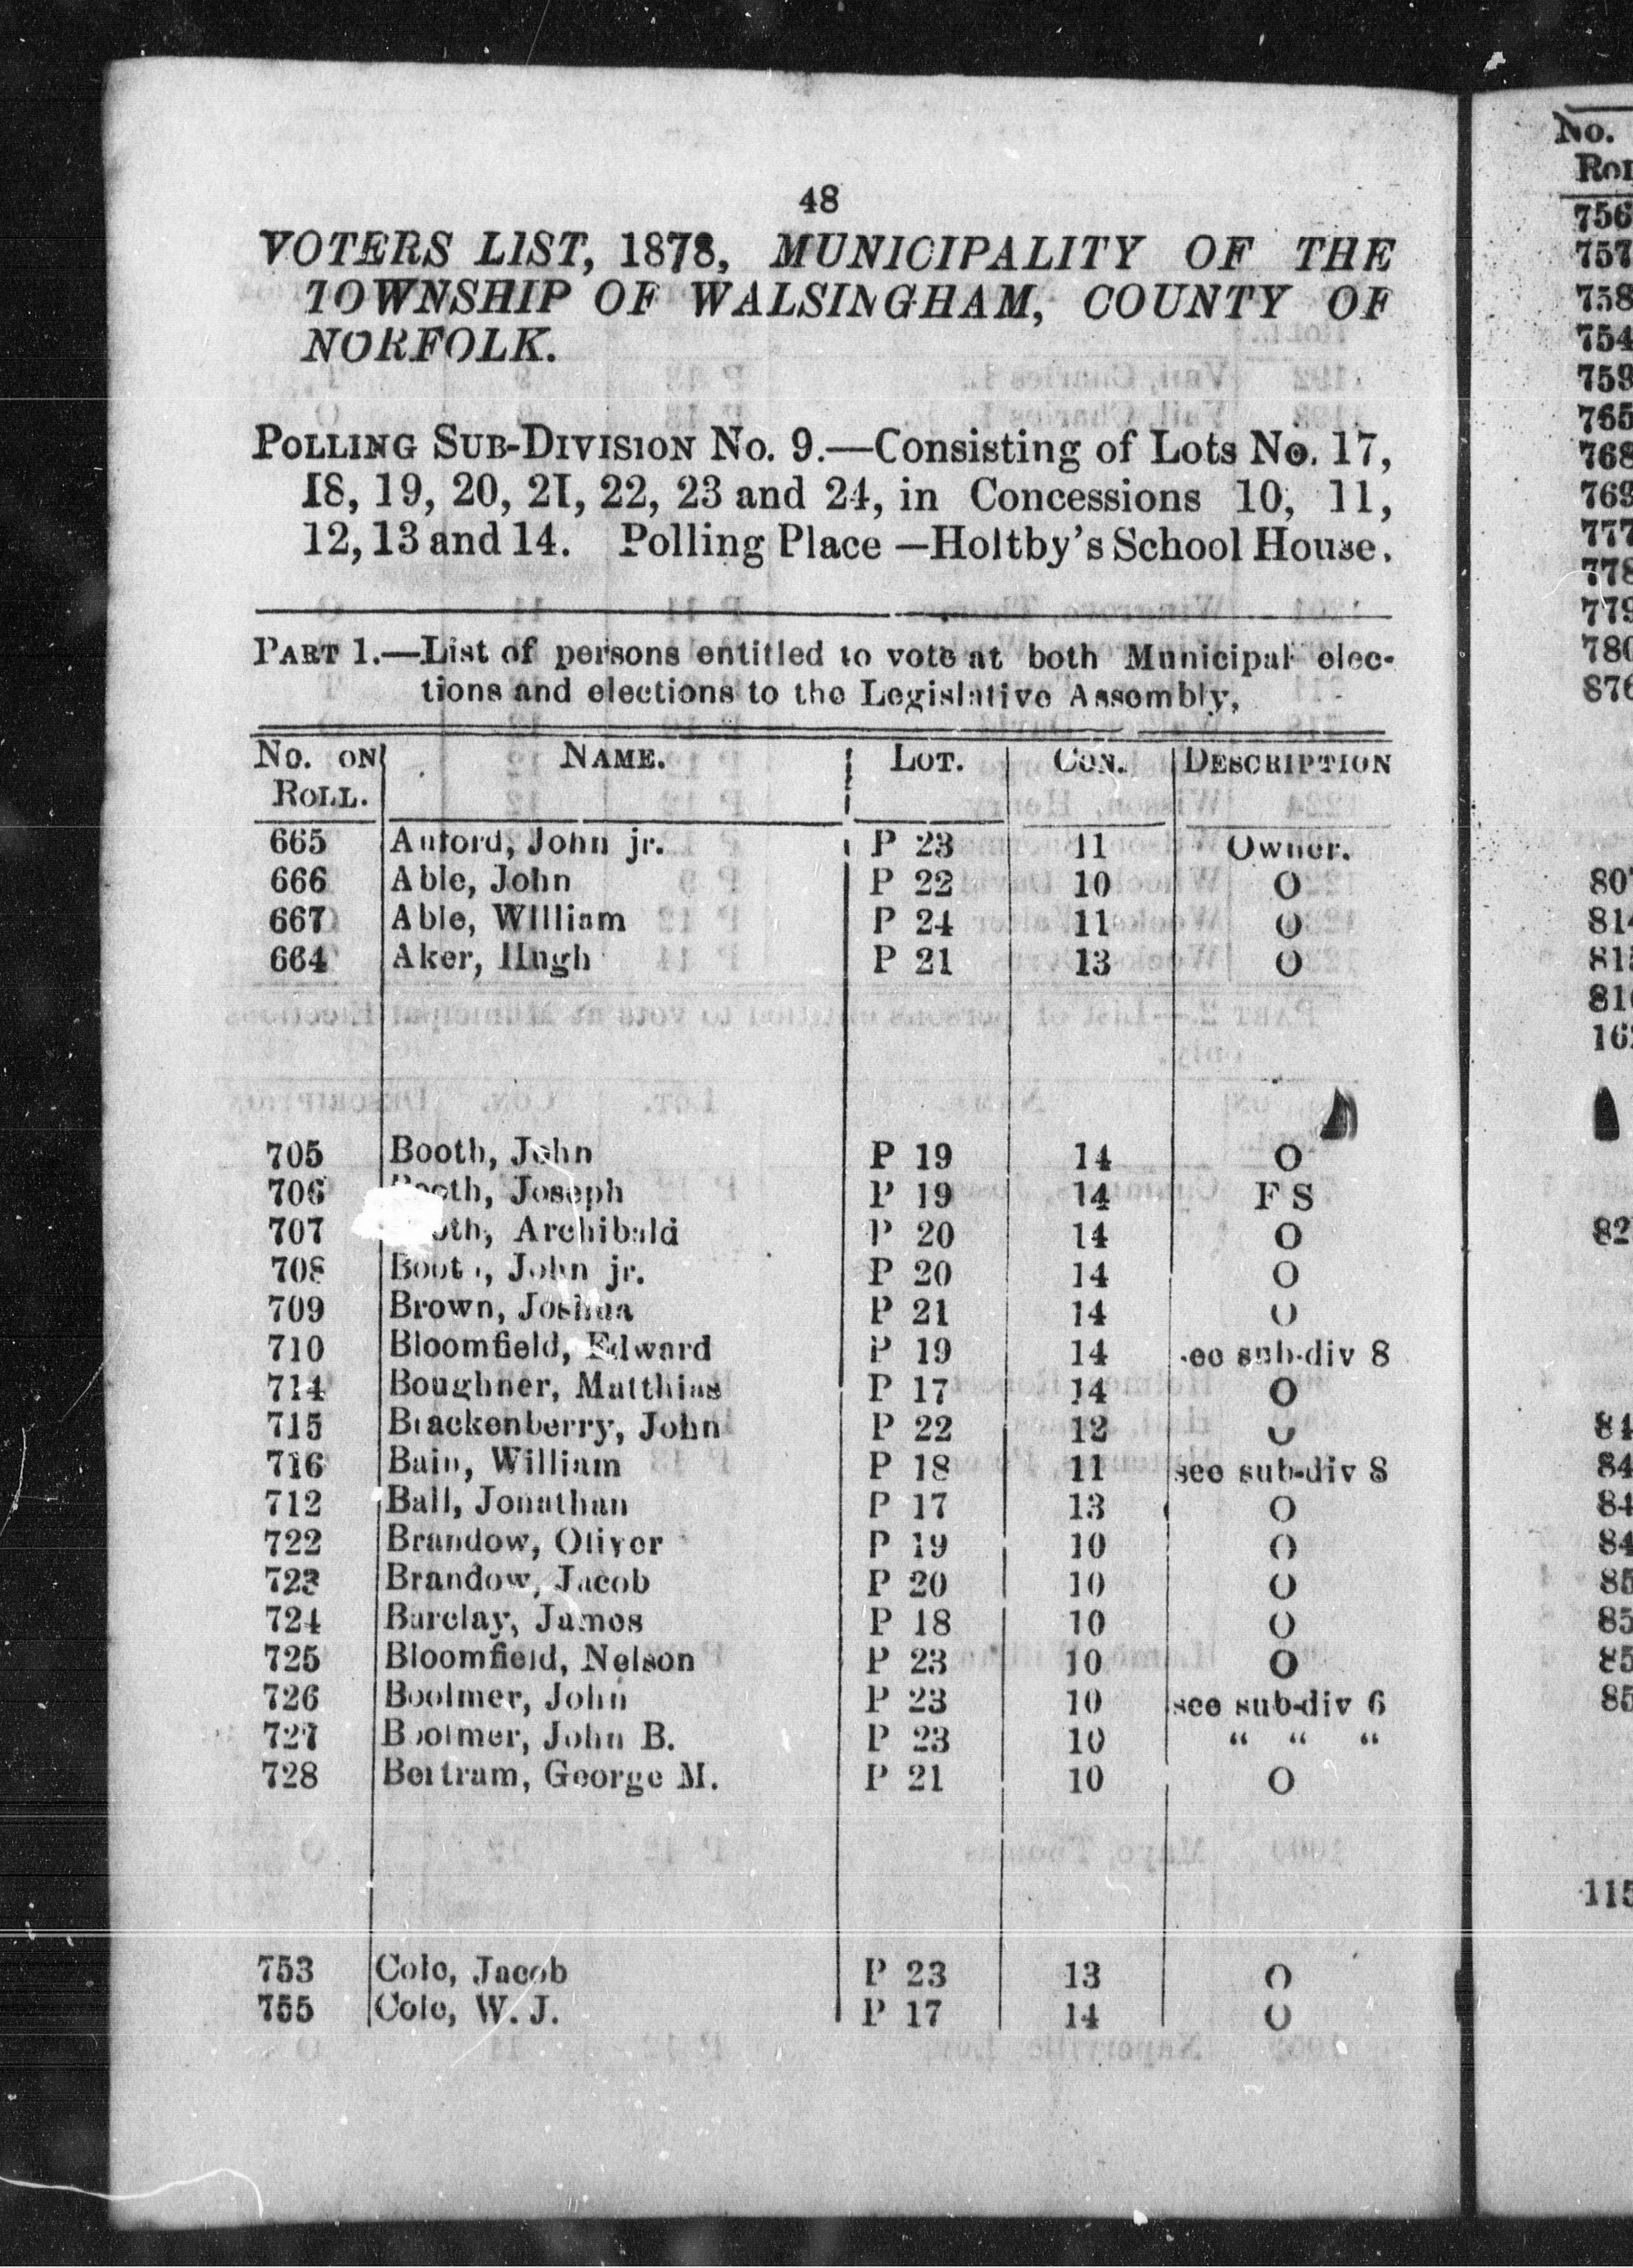 48
VOTERS LIST, 1878, MUNICIPALITY OF THE
TOWNSHIP OF WALSINGHAM, COUNTY OF
NORFOLK.
POLLING SUB-DIVISION No. 9.—Consisting of Lots No. 17,
18, 19, 20, 21, 22, 23 and 24, in Concessions 10, 11,
12, 13 and 14. Polling Place —Holtby's School House.
PART 1.—List of persons entitled to vote at both Municipal elec-
tions and elections to the Legislative Assembly,
No. ON ROLL. NAME. LOT. CON. DESCRIPTION
665 John jr. P 23 11 Owner.
666 Able, John P 22 10 O
667 Able, William P 24 11 O
664 Aker, Hugh P 21 13 O
705 Booth, John P 19 14 O
706 Booth, Joseph P 19 14 F S
707 oth, Archibald P 20 14 O
708 Booth, John jr. P 20 14 O
709 Brown, Joshua P 21 14 O
710 Bloomfield, Edward P 19 14 see sub-div 8
714 Boughner, Matthias P 17 14 O
715 Brackenberry, John P 22 12 O
716 Bain, William P 18 11 see sub-div 8
712 Ball, Jonathan P 17 13 O
722 Brandow, Oliver P 19 10 O
723 Brandow, Jacob P 20 10 O
724 Barclay, James P 18 10 O
725 Bloomfield, Nelson P 23 10 O
726 Boolmer, John P 23 10 see sub-div 6
727 Boolmer, John B. P 23 10 “ “ “
728 Bertram, George M. P 21 10 O
753 Cole, Jacob P 23 13 O
755 Cole, W. J. P 17 14 O
No.
756
757
758
754
759
765
768
769
777
778
779
780
876